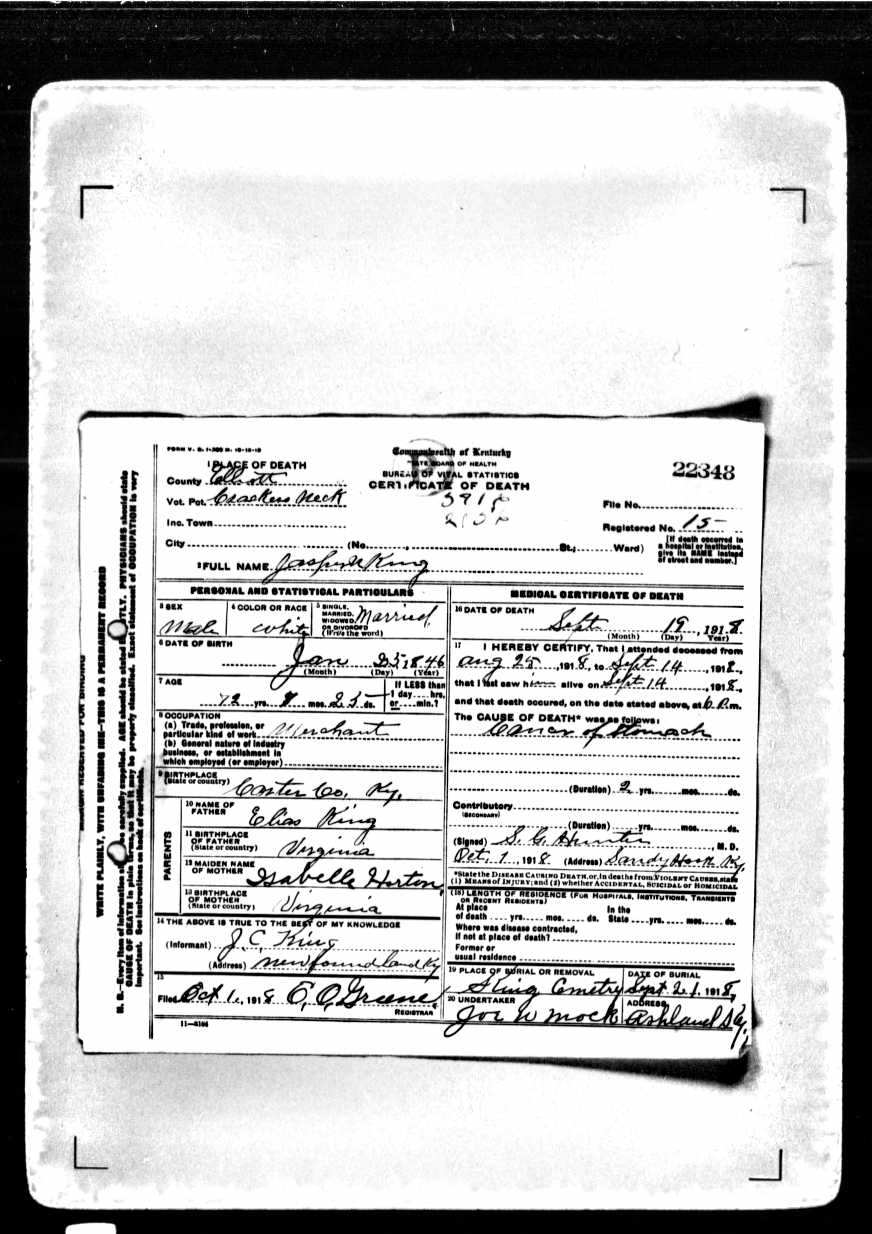 FORM V. S. 1-300 M. 10-16-16
Commonwealth of Kentucky
STATE BOARD OF HEALTH
BUREAU OF VITAL STATISTICS
CERTIFICATE OF DEATH
22348
1 PLACE OF DEATH
County Elliott
Vot. Pct. Crackers Neck
Inc. Town
City (No. St.; Ward)
File No.
Registered No. 15
[If death occurred in
a hospital or institution,
give its NAME instead
of street and number.]
2 FULL NAME Jasper King
PERSONAL AND STATISTICAL PARTICULARS
3 SEX Male
4 COLOR OR RACE White
5 SINGLE, MARRIED, WIDOWED OR DIVORCED (Write the word) Married
6 DATE OF BIRTH
Jan 25 1846
(Month) (Day) (Year)
7 AGE
72 yrs. 8 mos. 25 ds.
If LESS than
1 day hrs.
or min.?
8 OCCUPATION
(a) Trade, profession, or
particular kind of work Merchant
(b) General nature of industry
business, or establishment in
which employed (or employer)
9 BIRTHPLACE
(State or country) Carter Co. Ky.
PARENTS
10 NAME OF
FATHER Elias King
11 BIRTHPLACE
OF FATHER
(State or country) Virginia
12 MAIDEN NAME
OF MOTHER Isabelle Horton
13 BIRTHPLACE
OF MOTHER
(State or country) Virginia
14 THE ABOVE IS TRUE TO THE BEST OF MY KNOWLEDGE
(Informant) J. C. King
(Address) Newfoundland Ky
15
Filed Oct 1, 1918 C. C. Greene
REGISTRAR
11-3184
MEDICAL CERTIFICATE OF DEATH
16 DATE OF DEATH
Sept 19, 1918
(Month) (Day) Year)
17 I HEREBY CERTIFY, That I attended deceased from
Aug 25, 1918, to Sept 14, 1918,
that I last saw him alive on Sept 14, 1918,
and that death occured, on the date stated above, at 6 P.m.
The CAUSE OF DEATH* was as follows:
Cancer of Stomach
(Duration) 2 yrs. mos. ds.
Contributory
(SECONDARY)
(Duration) yrs. mos. ds.
(Signed) S. C. Hunter, M. D.
Oct. 1, 1918 (Address) Sandy Hook Ky.
*State the DISEASE CAUSING DEATH, or, in deaths from VIOLENT CAUSES, state
(1) MEANS of INJURY; and (2) whether ACCIDENTAL, SUICIDAL or HOMICIDAL
(18) LENGTH OF RESIDENCE (FOR HOSPITALS, INSTITUTIONS, TRANSIENTS
OR RECENT RESIDENTS)
At place In the
of death yrs. mos. ds. State yrs. mos. ds.
Where was disease contracted,
if not at place of death?
Former or
usual residence
19 PLACE OF BURIAL OR REMOVAL
King Cemetry
DATE OF BURIAL
Sept 21, 1918,
20 UNDERTAKER
Joe W Mock
ADDRESS
Ashland Ky,
MARGIN RESERVED FOR BINDING
WRITE PLAINLY, WITH UNFADING INK—THIS IS A PERMANENT RECORD
N. B.—Every item of information should be carefully supplied. AGE should be stated EXACTLY. PHYSICIANS should state
CAUSE OF DEATH in plain terms, so that it may be properly classified. Exact statement of OCCUPATION is very
important. See instructions on back of certificate.